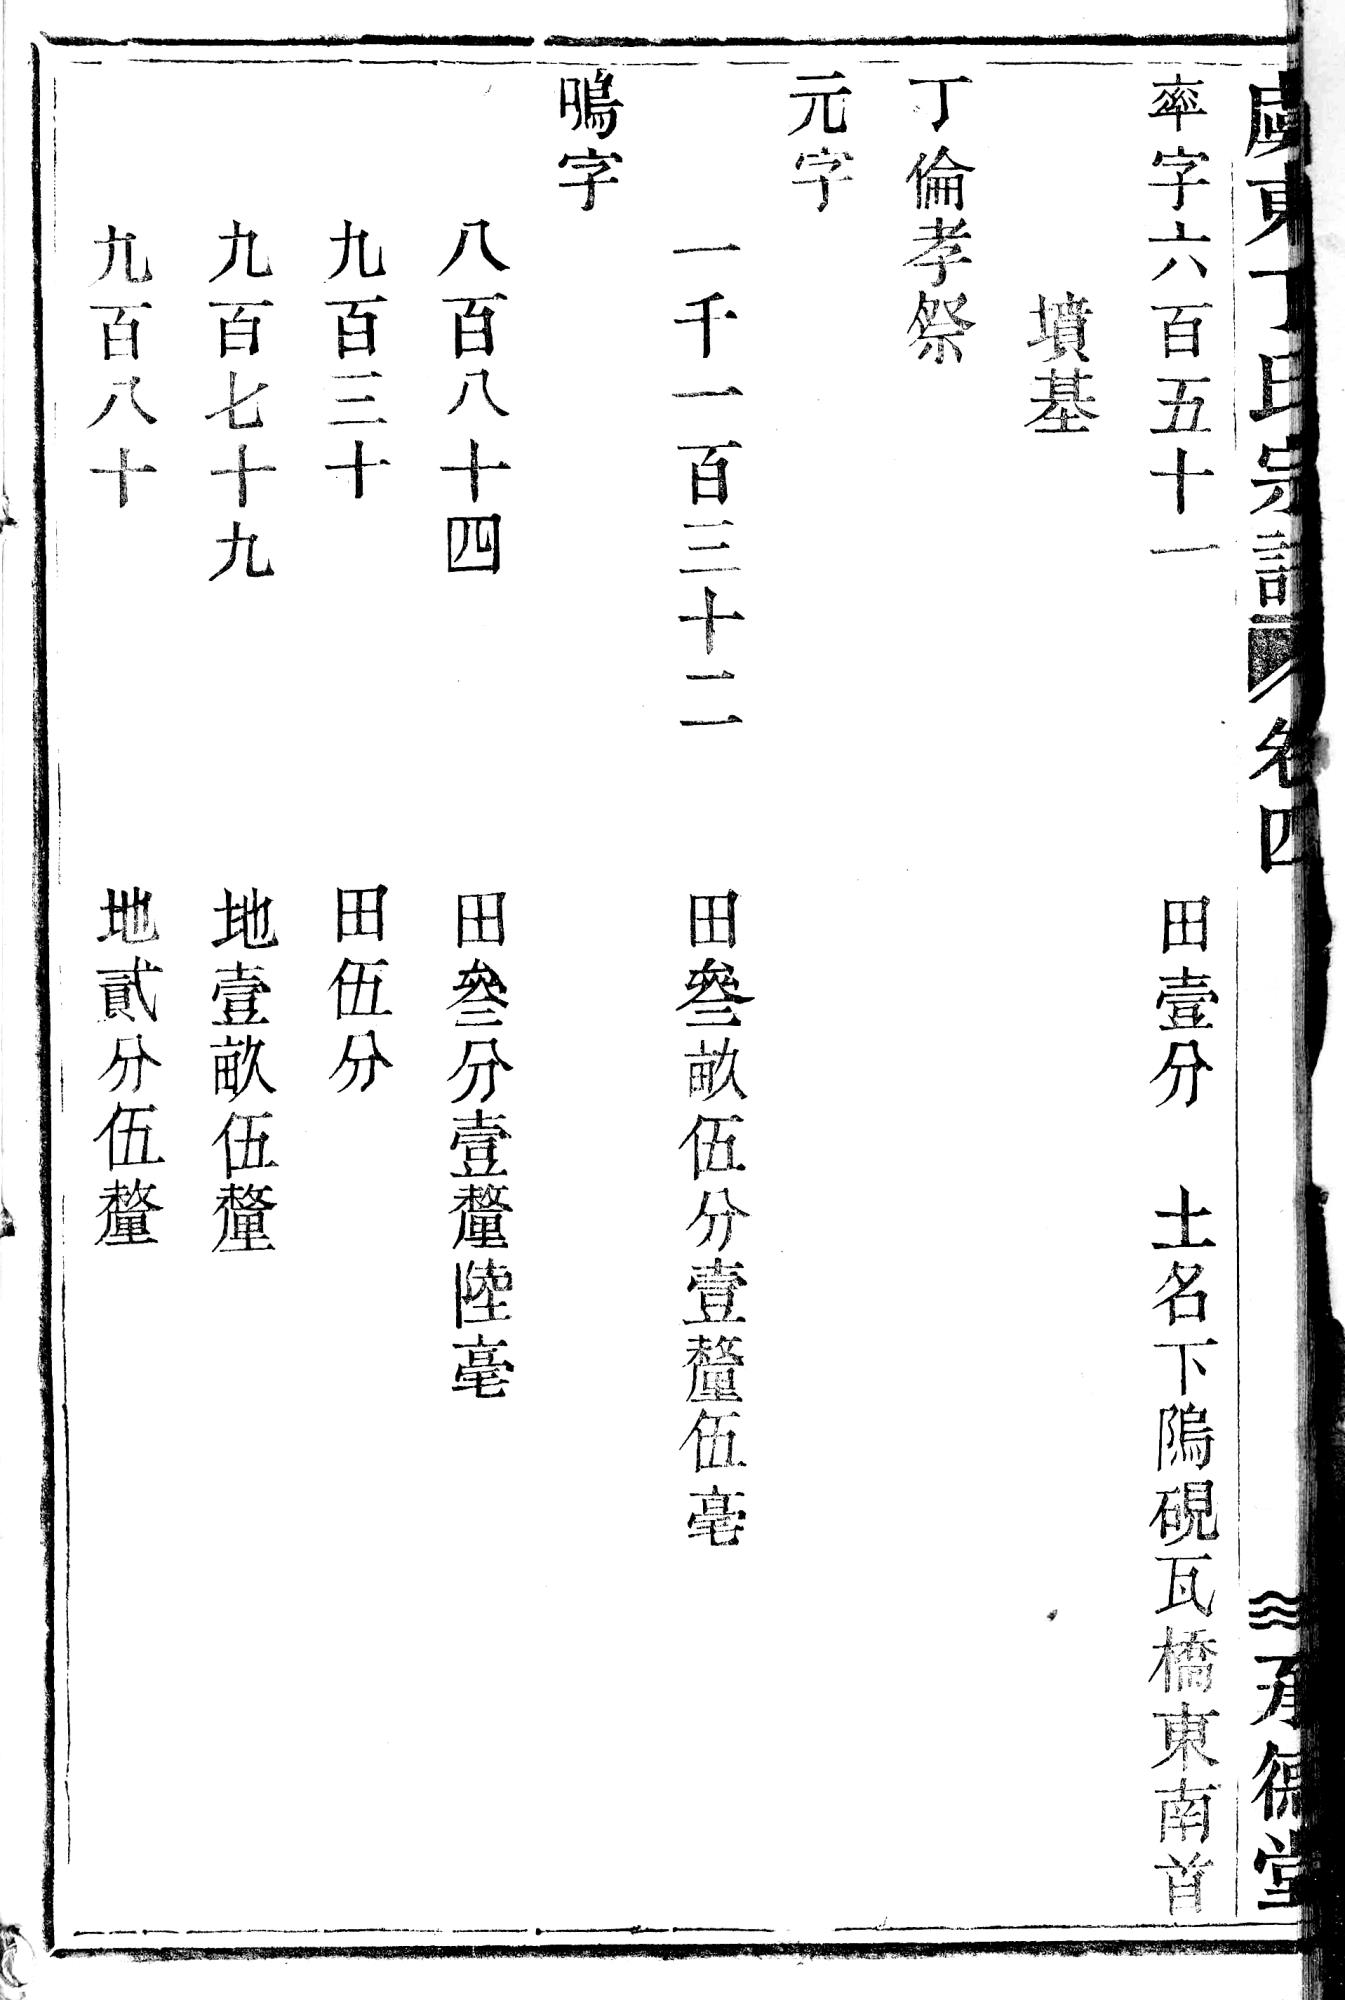 虞東丁氏宗譜 卷四 承德堂
率字六百五十一 田壹分 土名下隖硯瓦橋東南首
墳基
丁倫孝祭
元字
一千一百三十二 田叄畝伍分壹釐伍毫
鳴字
八百八十四 田叄分壹釐陸毫
九百三十 田伍分
九百七十九 地壹畝伍釐
九百八十 地貳分伍釐